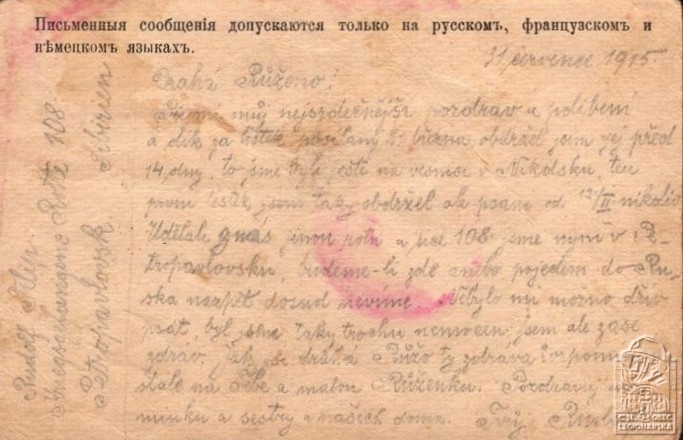 Письменныя сообщенія допускаются только на русскомъ, французскомъ и
нѣмецкомъ языкахъ.
31 července 1915.
Drahá Růženo!
můj nejsrdečnější pozdrav a políbení
a dík za lístek poslaný 5. března obdržel jsem jej před
14 dny. to jsme byli ještě na vesnici v Nikolsku, ten
první lístek jsem taky obdržel ale psaní od 12/II nikoliv
Udělali z nás jinou rotu a sice 108 jsme nyní v Pe-
tropavlovsku, budeme-li zde anebo pojedem do Ru-
ska nazpět dosud nevíme. Nebylo mi možno dřív
psát, byl jsem taky trochu nemocen jsem ale zase
zdráv, jak jsi drahá Růžo ty zdráva
stále na Tebe a malou Růženku. Pozdravuj
minku a sestry a našich doma. Tvůj
Rudolf
Kriegsgefangene Rote 108
Petropavlovsk Sibirien